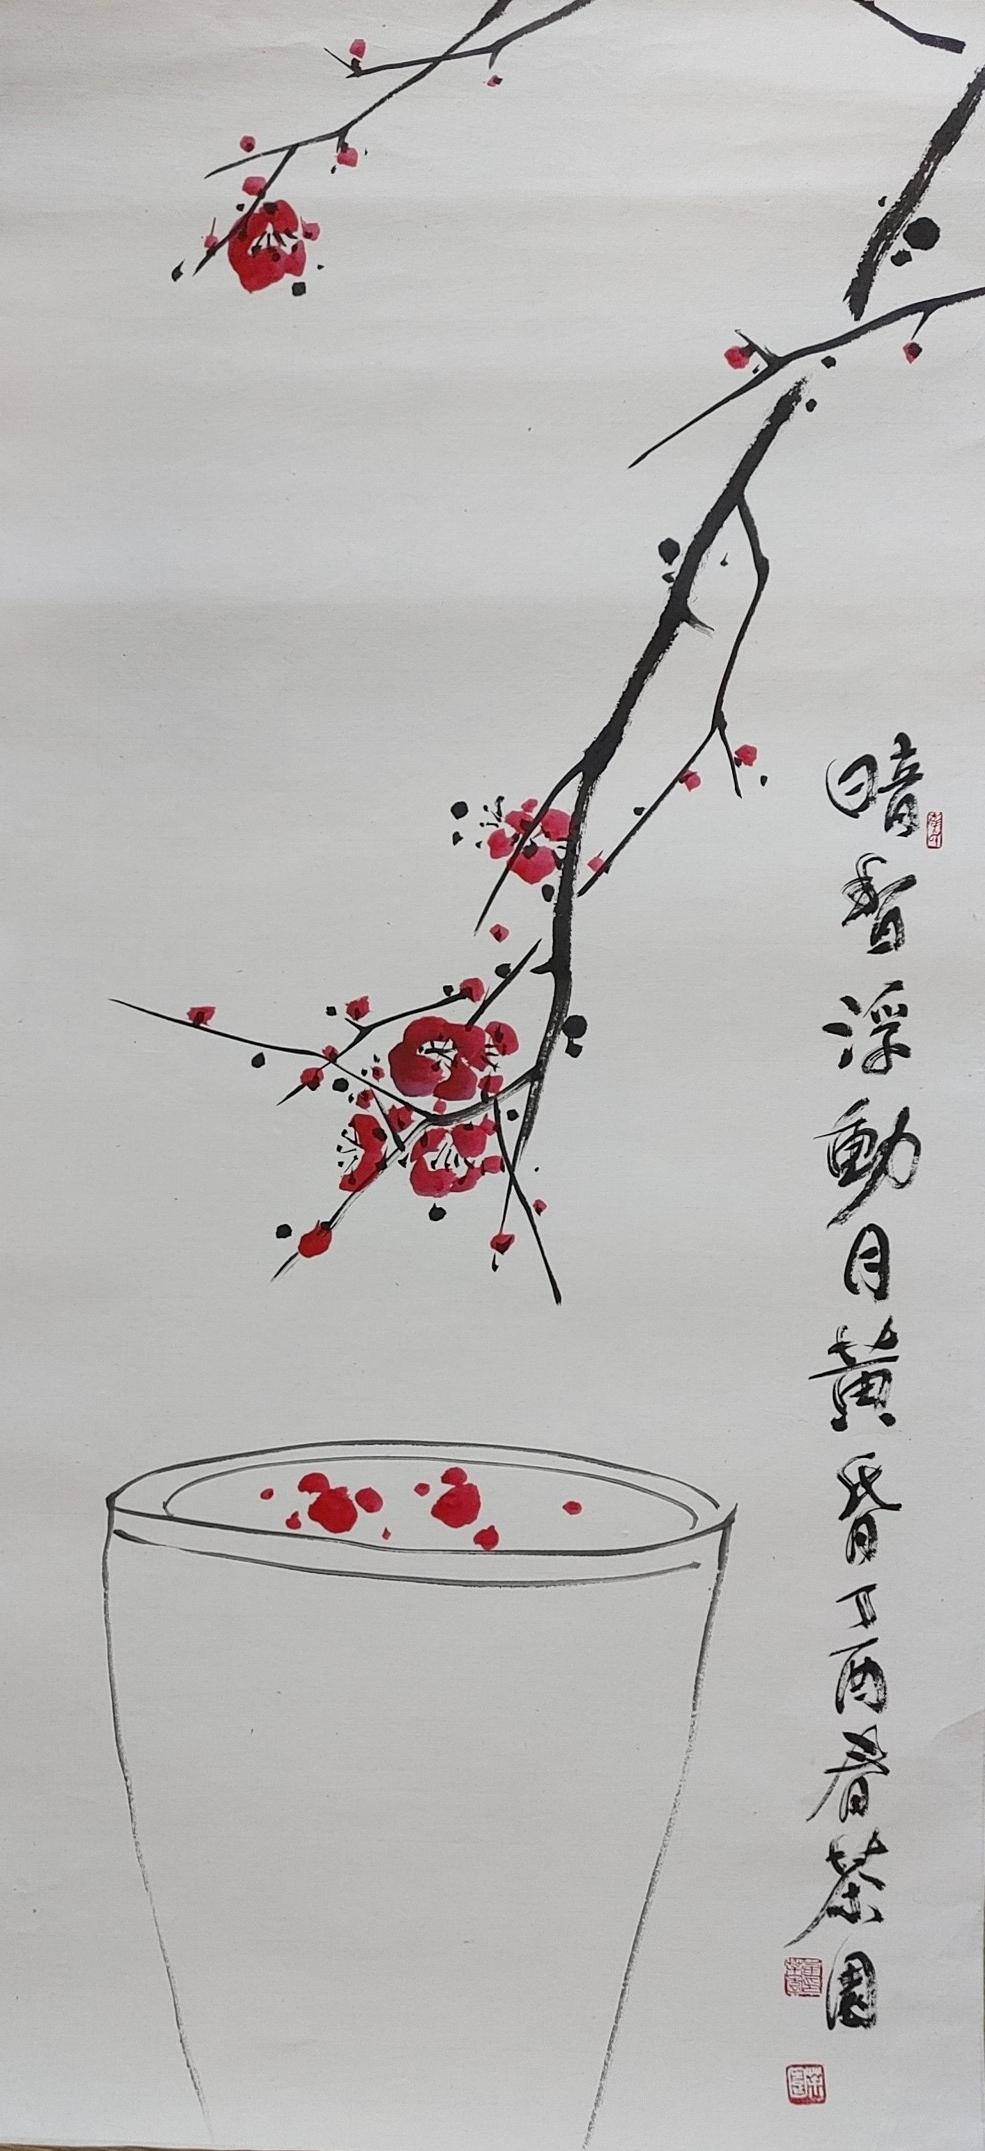 暗香浮動月黃昏丁酉春茶園